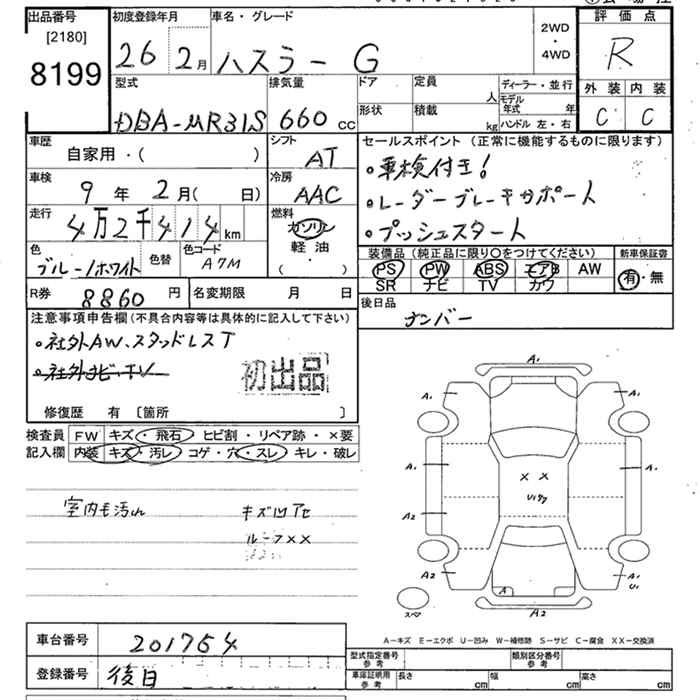 出品番号
[2180]
8199
初度登録年月
26 2月
車名・グレード
ハスラー G
2WD
・
4WD
評価点
R
外装 内装
C C
型式
DBA-MR31S
排気量
660 cc
ドア
形状
定員 人
積載 kg
ディーラー・並行
モデル年式 年
ハンドル 左・右
車歴
自家用・( )
シフト
AT
車検
9年 2月( 日)
冷房
AAC
走行
4万2千414km
燃料
ガソリン
軽油
・( )
色
ブルー/ホワイト
色替
色コード
A7M
R券
8860円
名変期限 月 日
セールスポイント (正常に機能するものに限ります)
・車検付き!
・レーダーブレーキサポート
・プッシュスタート
装備品 (純正品に限り○をつけてください)
PS PW ABS エアB AW
SR ナビ TV カワ
新車保証書
有・無
後日品
ナンバー
注意事項申告欄(不具合内容等は具体的に記入して下さい)
・社外AW、スタッドレスT
・社外ナビ・TV
初出品
修復歴 有 〔箇所 〕
検査員記入欄
FW キズ・飛石・ヒビ割・リペア跡・×要
内装 キズ・汚レ・コゲ・穴・スレ・キレ・破レ
室内モ汚れ
キズ凹アセ
ルーフ××
A1
A1 A1
A1 A1
A2
× ×
A2 A1
U1
A
A2
スペア
A-キズ E-エクボ U-凹み W-補修跡 S-サビ C-腐食 XX-交換済
車台番号
201754
登録番号
後日
型式指定番号
参考
類別区分番号
参考
車庫証明用
参考
長さ cm
幅 cm
高さ cm